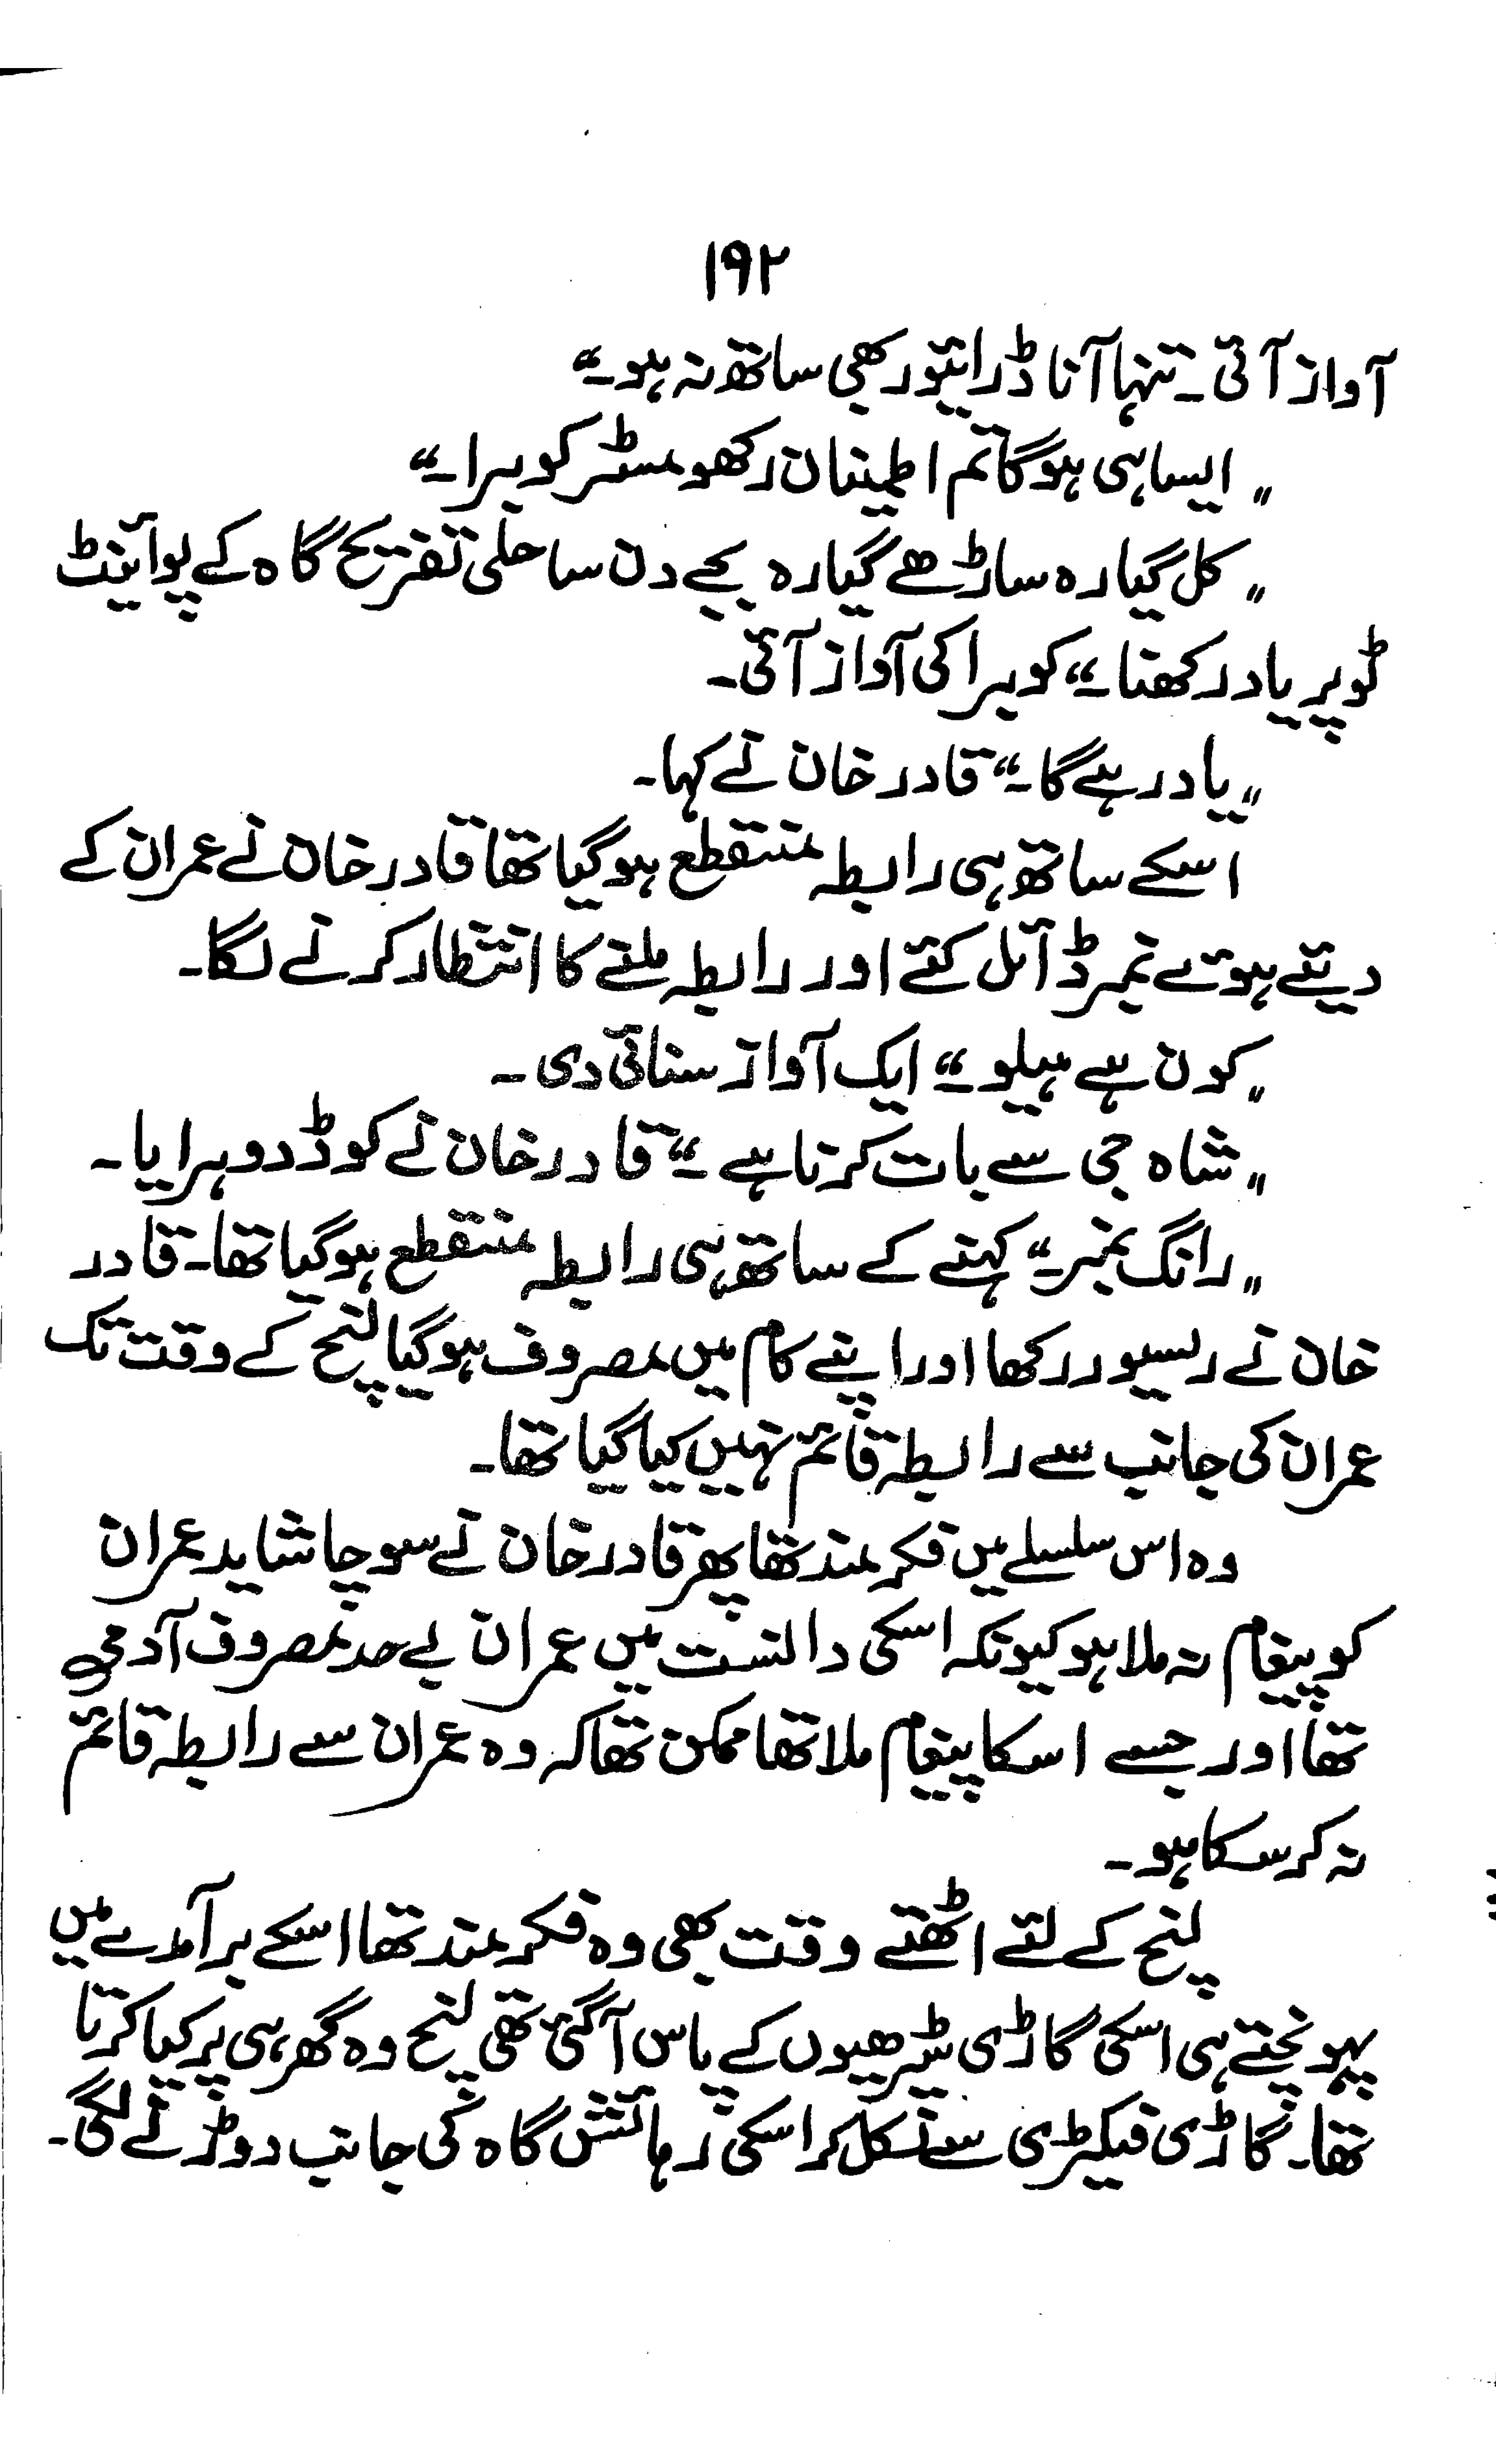 ۱۹۲
آواز آئی۔ تنہا آنا ڈرائیور بھی ساتھ نہ ہو۔“
”ایسا ہی ہوگا تم اطمینان رکھو مسٹر کوبرا۔“
”کل گیارہ ساڑھے گیارہ بجے دن ساحلی تفریح گاہ کے پوائینٹ
ٹو پر یاد رکھنا۔“ کوبرا کی آواز آئی۔
”یاد رہے گا۔“ قادر خان نے کہا۔
اسکے ساتھ ہی رابطہ منقطع ہوگیا تھا قادر خان نے عمران کے
دیئے ہوئے نمبر ڈائل کئے اور رابطہ ملنے کا انتظار کرنے لگا۔
”کون ہے ہیلو۔“ ایک آواز سنائی دی۔
”شاہ جی سے بات کرنا ہے۔“ قادر خان نے کوڈ دوہرایا۔
”رانگ نمبر۔“ کہنے کے ساتھ ہی رابطہ منقطع ہوگیا تھا۔ قادر
خان نے ریسیور رکھا اور اپنے کام میں مصروف ہوگیا لنچ کے وقت تک
عمران کی جانب سے رابطہ قائم نہیں کیا گیا تھا۔
وہ اس سلسلے میں فکر مند تھا پھر قادر خان نے سوچا شاید عمران
کو پیغام نہ ملا ہو کیونکہ اسکی دانست میں عمران بے حد مصروف آدمی
تھا اور جسے اسکا پیغام ملا تھا ممکن تھا کہ وہ عمران سے رابطہ قائم
نہ کر سکا ہو۔
لنچ کے لئے اٹھتے وقت بھی وہ فکر مند تھا اسکے برآمدے میں
پہونچتے ہی اسکی گاڑی سیڑھیوں کے پاس آگئی تھی لنچ وہ گھر ہی پر کیا کرتا
تھا۔ گاڑی فیکٹری سے نکل کر اسکی رہائش گاہ کی جانب دوڑنے لگی۔